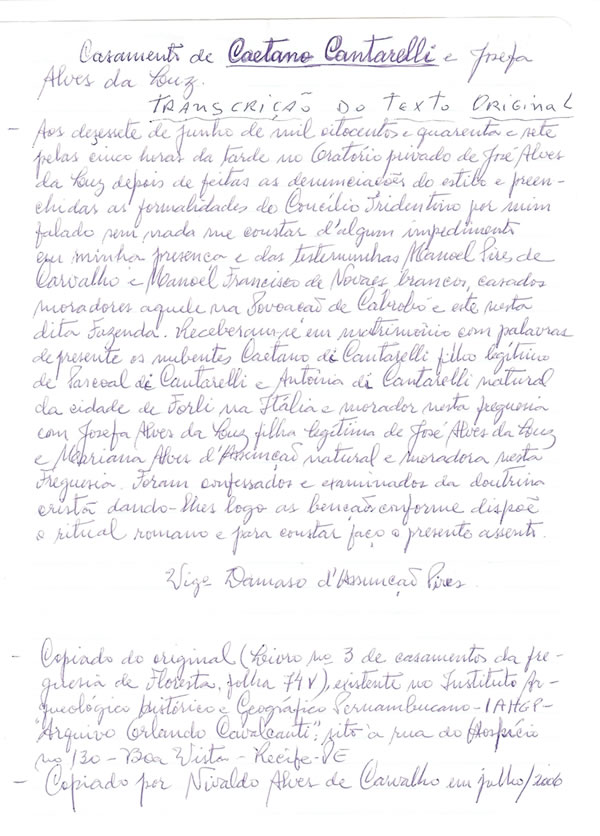 Casamento de Caetano Cantarelli e Josefa
Alves da Luz.
TRANSCRIÇÃO DO TEXTO ORIGINAL
— Aos dezessete de junho de mil oitocentos e quarenta e sete
pelas cinco horas da tarde no Oratório privado de José Alves
da Luz depois de feitas as denunciações do estilo e preen-
chidas as formalidades do Concílio Tridentino por mim
falado sem nada me constar d'algum impedimento
em minha presença e das testemunhas Manoel Pires de
Carvalho e Manoel Francisco de Novaes, brancos, casados
moradores aquele na Povoação de Cabrobó e este nesta
dita Fazenda. Receberam-se em matrimônio com palavras
de presente os nubentes Caetano di Cantarelli filho legítimo
de Pascoal di Cantarelli e Antonia di Cantarelli natural
da cidade de Forli na Itália e morador nesta freguesia
com Josefa Alves da Luz filha legítima de José Alves da Luz
e Mariana Alves d'Assunção natural e moradora nesta
Freguesia. Foram confessados e examinados da doutrina
cristã dando-lhes logo as bençãos conforme dispõe
o ritual romano e para constar faço o presente assento.
Vigo Damaso d'Assunção Pires.
— Copiado do original (Livro nº 3 de casamentos da fre-
guesia de Floresta, folha 74V), existente no Instituto Ar-
queológico Histórico e Geográfico Pernambucano - IAHGP-
"Arquivo Orlando Cavalcanti", sito à rua do Hospício
nº 130 - Boa Vista - Recife-PE
— Copiado por Nivaldo Alves de Carvalho em julho/2006